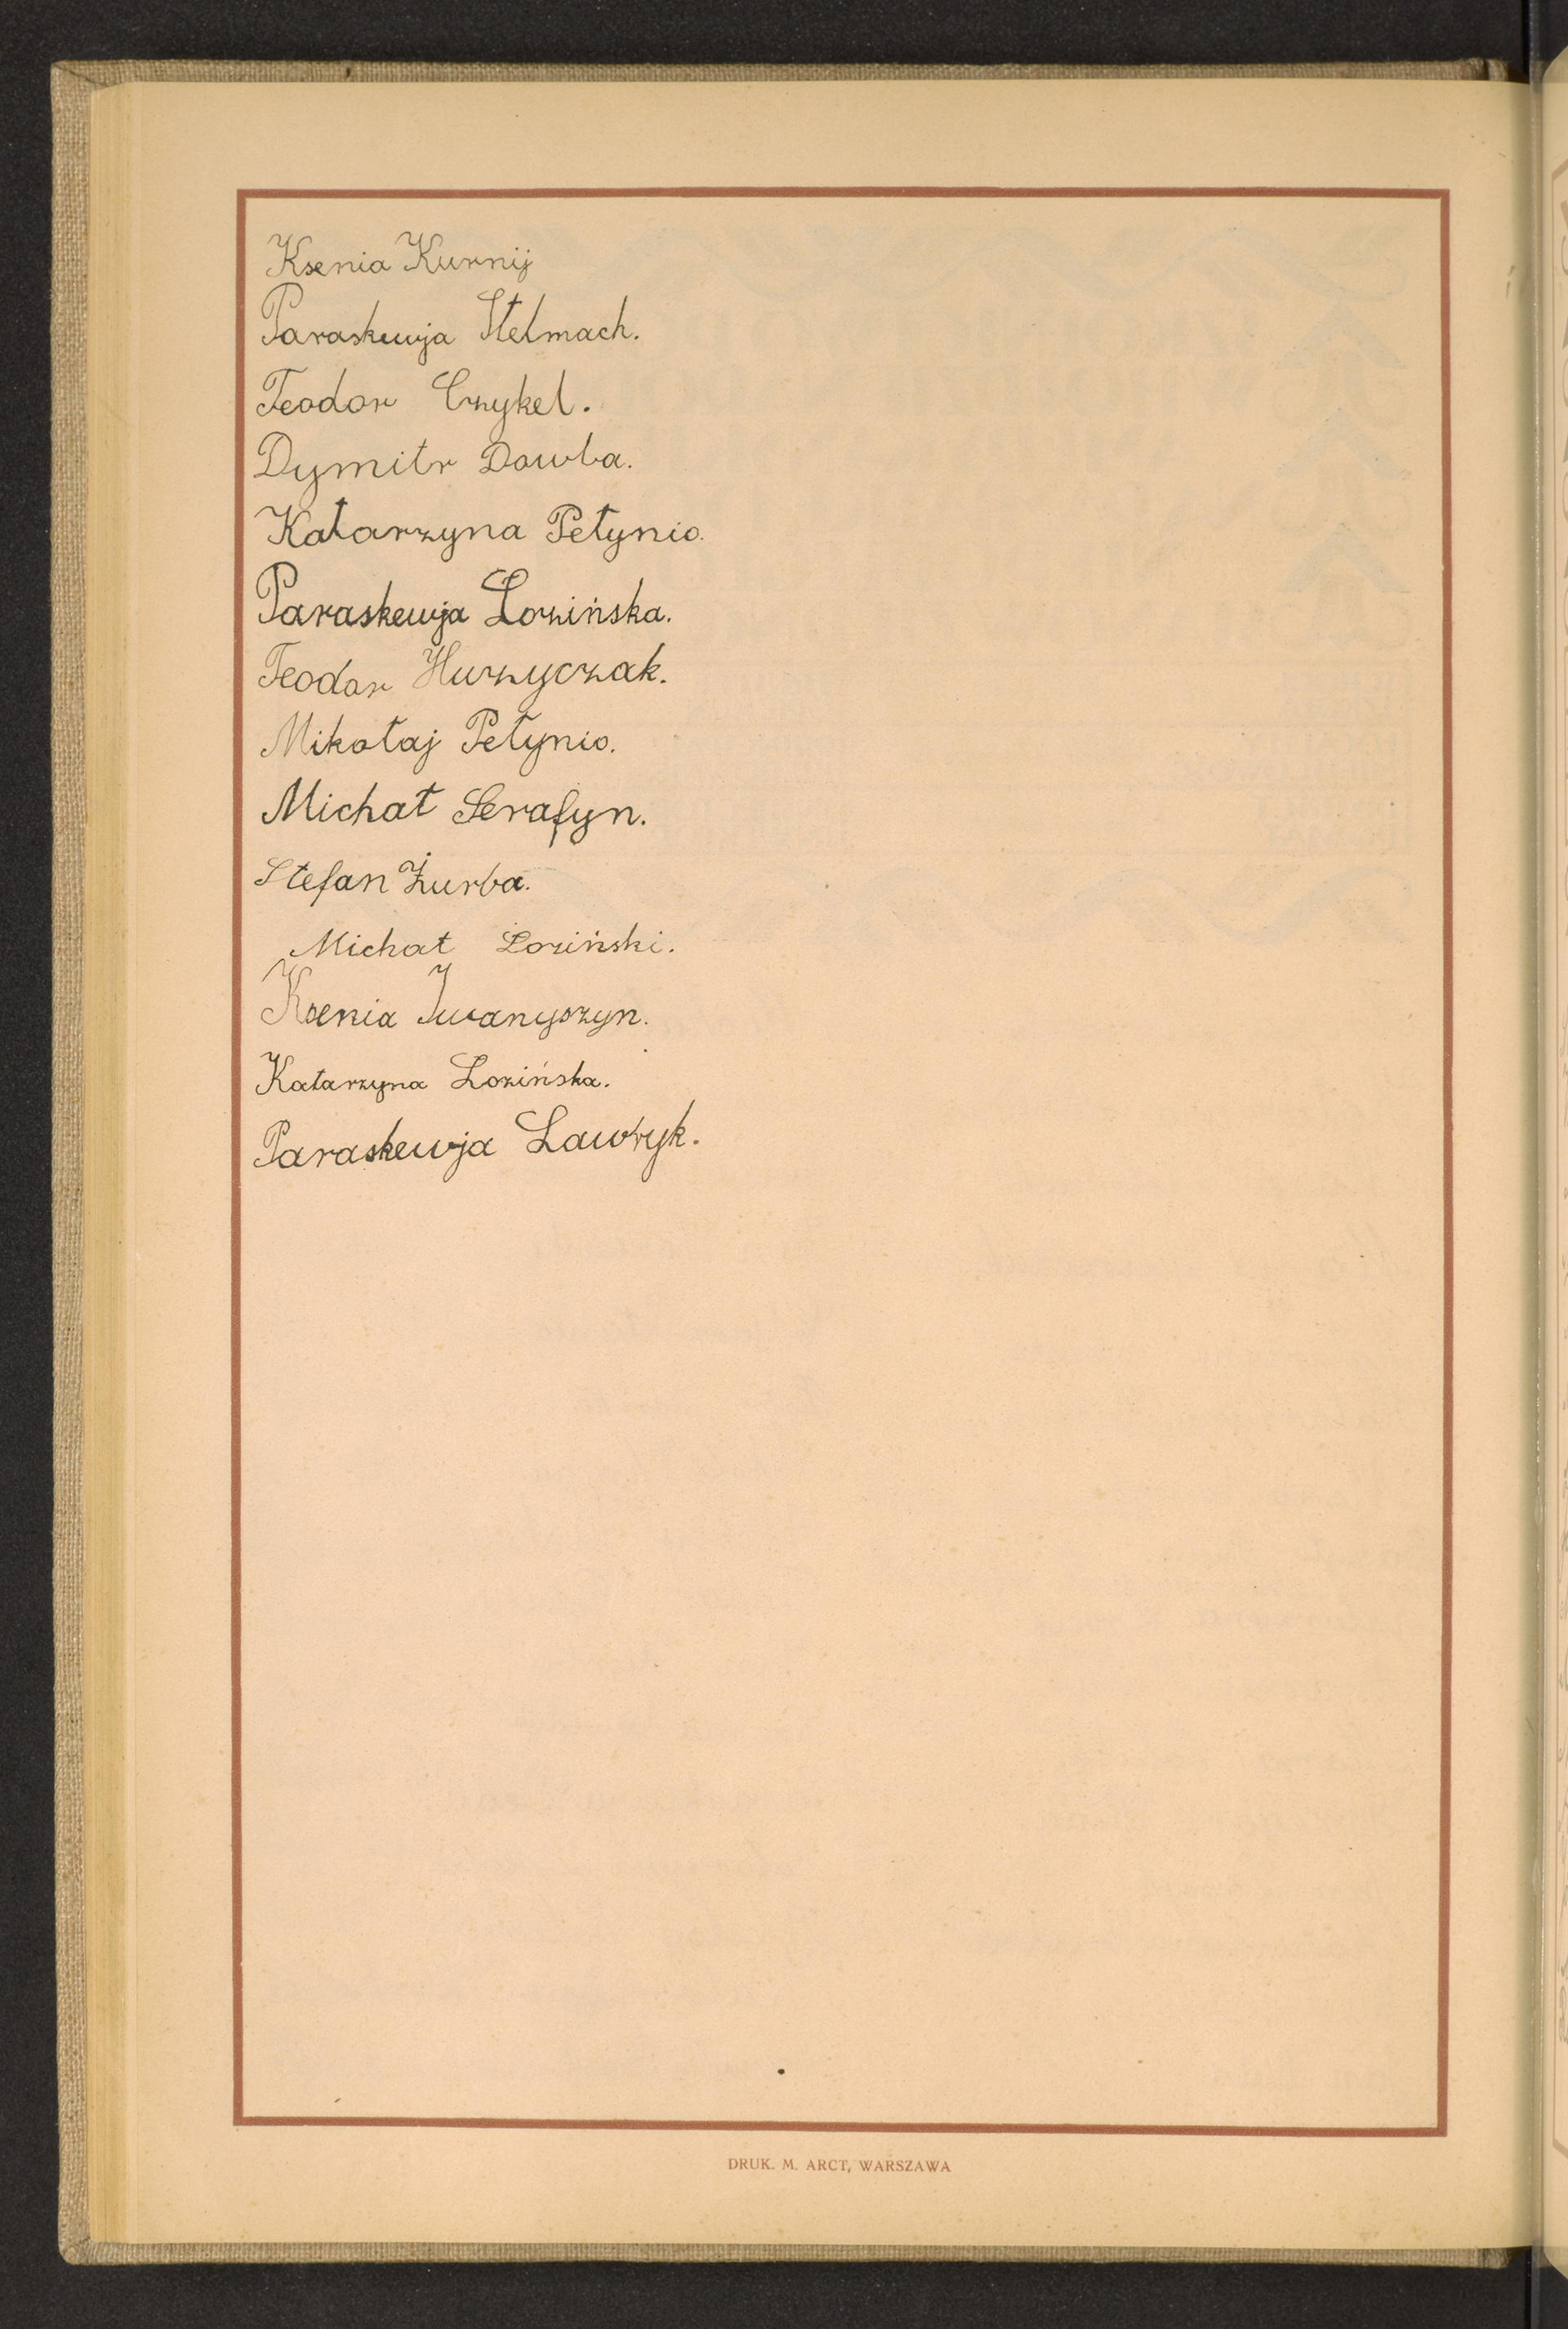 Ksenia Kurnij
Paraskewja Stelmach.
Teodor Czykel.
Dymitr Dowba.
Katarzyna Petynio.
Paraskewja Łozińska.
Teodor Huzyczak.
Mikołaj Petynio.
Michał Serafyn.
Stefan Żurba.
Michał Łoziński.
Ksenia Iwanyszyn.
Katarzyna Łozińska.
Paraskewja Ławryk.
DRUK. M. ARCT, WARSZAWA